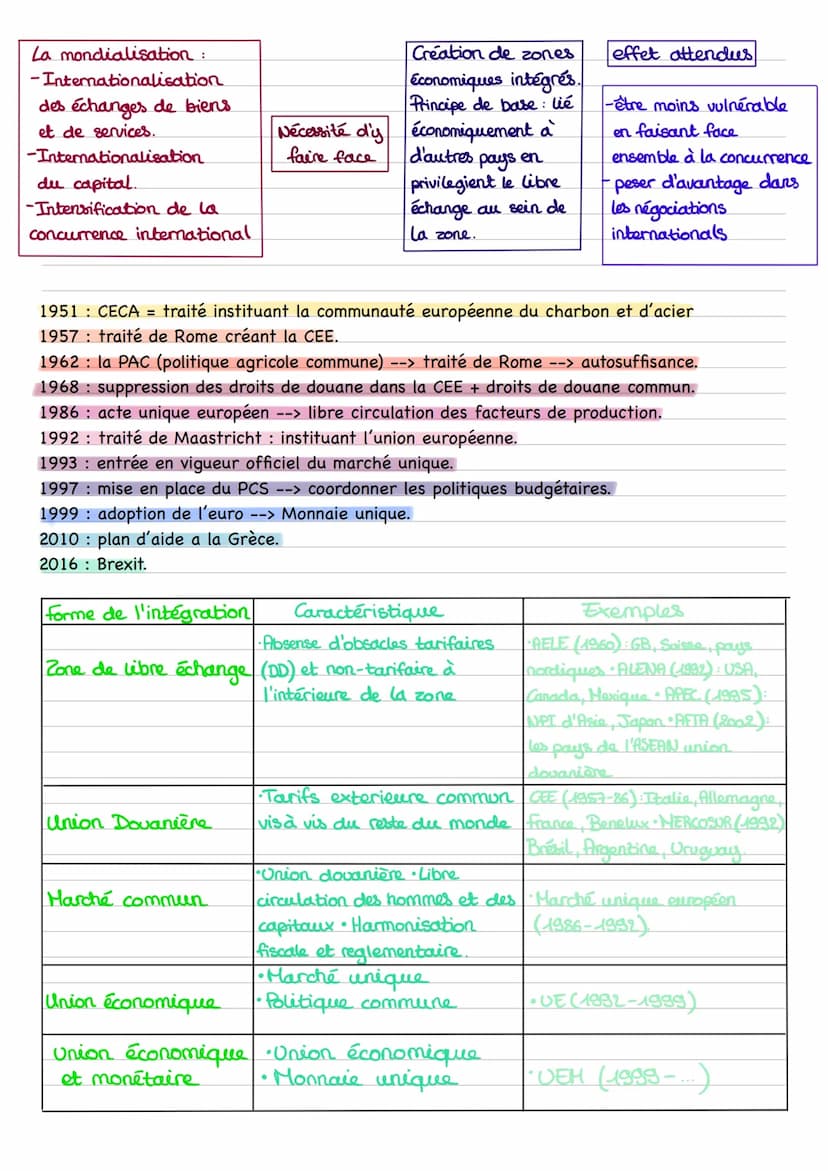 La mondialisation :
- Internationalisation
des échanges de biens
et de services.
- Internationalisation
du capital.
- Intensification de la
concurrence international
Nécessité d'y
faire face
Création de zones
économiques intégrés.
Principe de base : lié
économiquement à
d'autres pays en
privilegient le libre
échange au sein de
la zone.
effet attendus
- être moins vulnérable
en faisant face
ensemble à la concurrence
- peser d'avantage dans
les négociations
internationals
1951 : CECA = traité instituant la communauté européenne du charbon et d'acier
1957 : traité de Rome créant la CEE.
1962 : la PAC (politique agricole commune) --> traité de Rome --> autosuffisance.
1968 : suppression des droits de douane dans la CEE + droits de douane commun.
1986 : acte unique européen --> libre circulation des facteurs de production.
1992 : traité de Maastricht : instituant l'union européenne.
1993 : entrée en vigueur officiel du marché unique.
1997 : mise en place du PCS --> coordonner les politiques budgétaires.
1999 : adoption de l'euro --> Monnaie unique.
2010 : plan d'aide a la Grèce.
2016 : Brexit.
forme de l'intégration
Caractéristique
Exemples
Zone de libre échange
• Absense d'obsacles tarifaires
(DD) et non-tarifaire à
l'intérieure de la zone
• AELE (1960) : GB, Suisse, pays
nordiques • ALENA (1992) : USA,
Canada, Mexique • APEC (1995) :
NPI d'Asie, Japon • AFTA (2002) :
les pays de l'ASEAN union
douanière
Union Douanière
• Tarifs exterieure commun
vis à vis du reste du monde
CEE (1957-86) : Italie, Allemagne,
France, Benelux • MERCOSUR (1992)
Brésil, Argentine, Uruguay.
Marché commun
• Union douanière • Libre
circulation des hommes et des
capitaux • Harmonisation
fiscale et reglementaire.
• Marché unique européen
(1986-1992)
Union économique
• Marché unique
• Politique commune
• UE (1992-1999)
Union économique
et monétaire
• Union économique
• Monnaie unique
• UEM (1999-...)